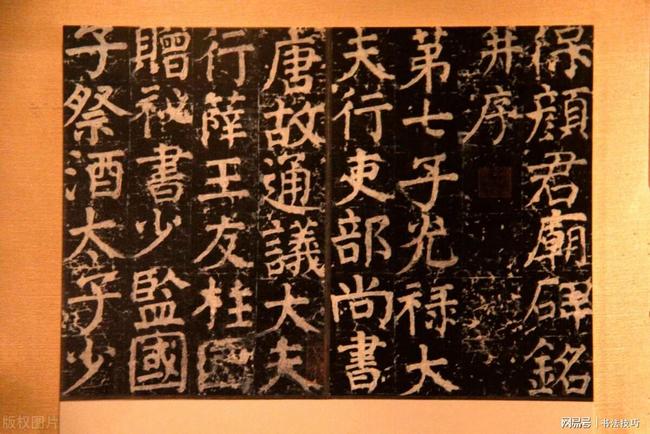 保顏君廟碑銘
并序
第七子光禄大
夫行吏部尚書
唐故通議大夫
行薛王友柱國
贈祕書少監國
子祭酒太子少
版权图片
网易号 | 书法技巧